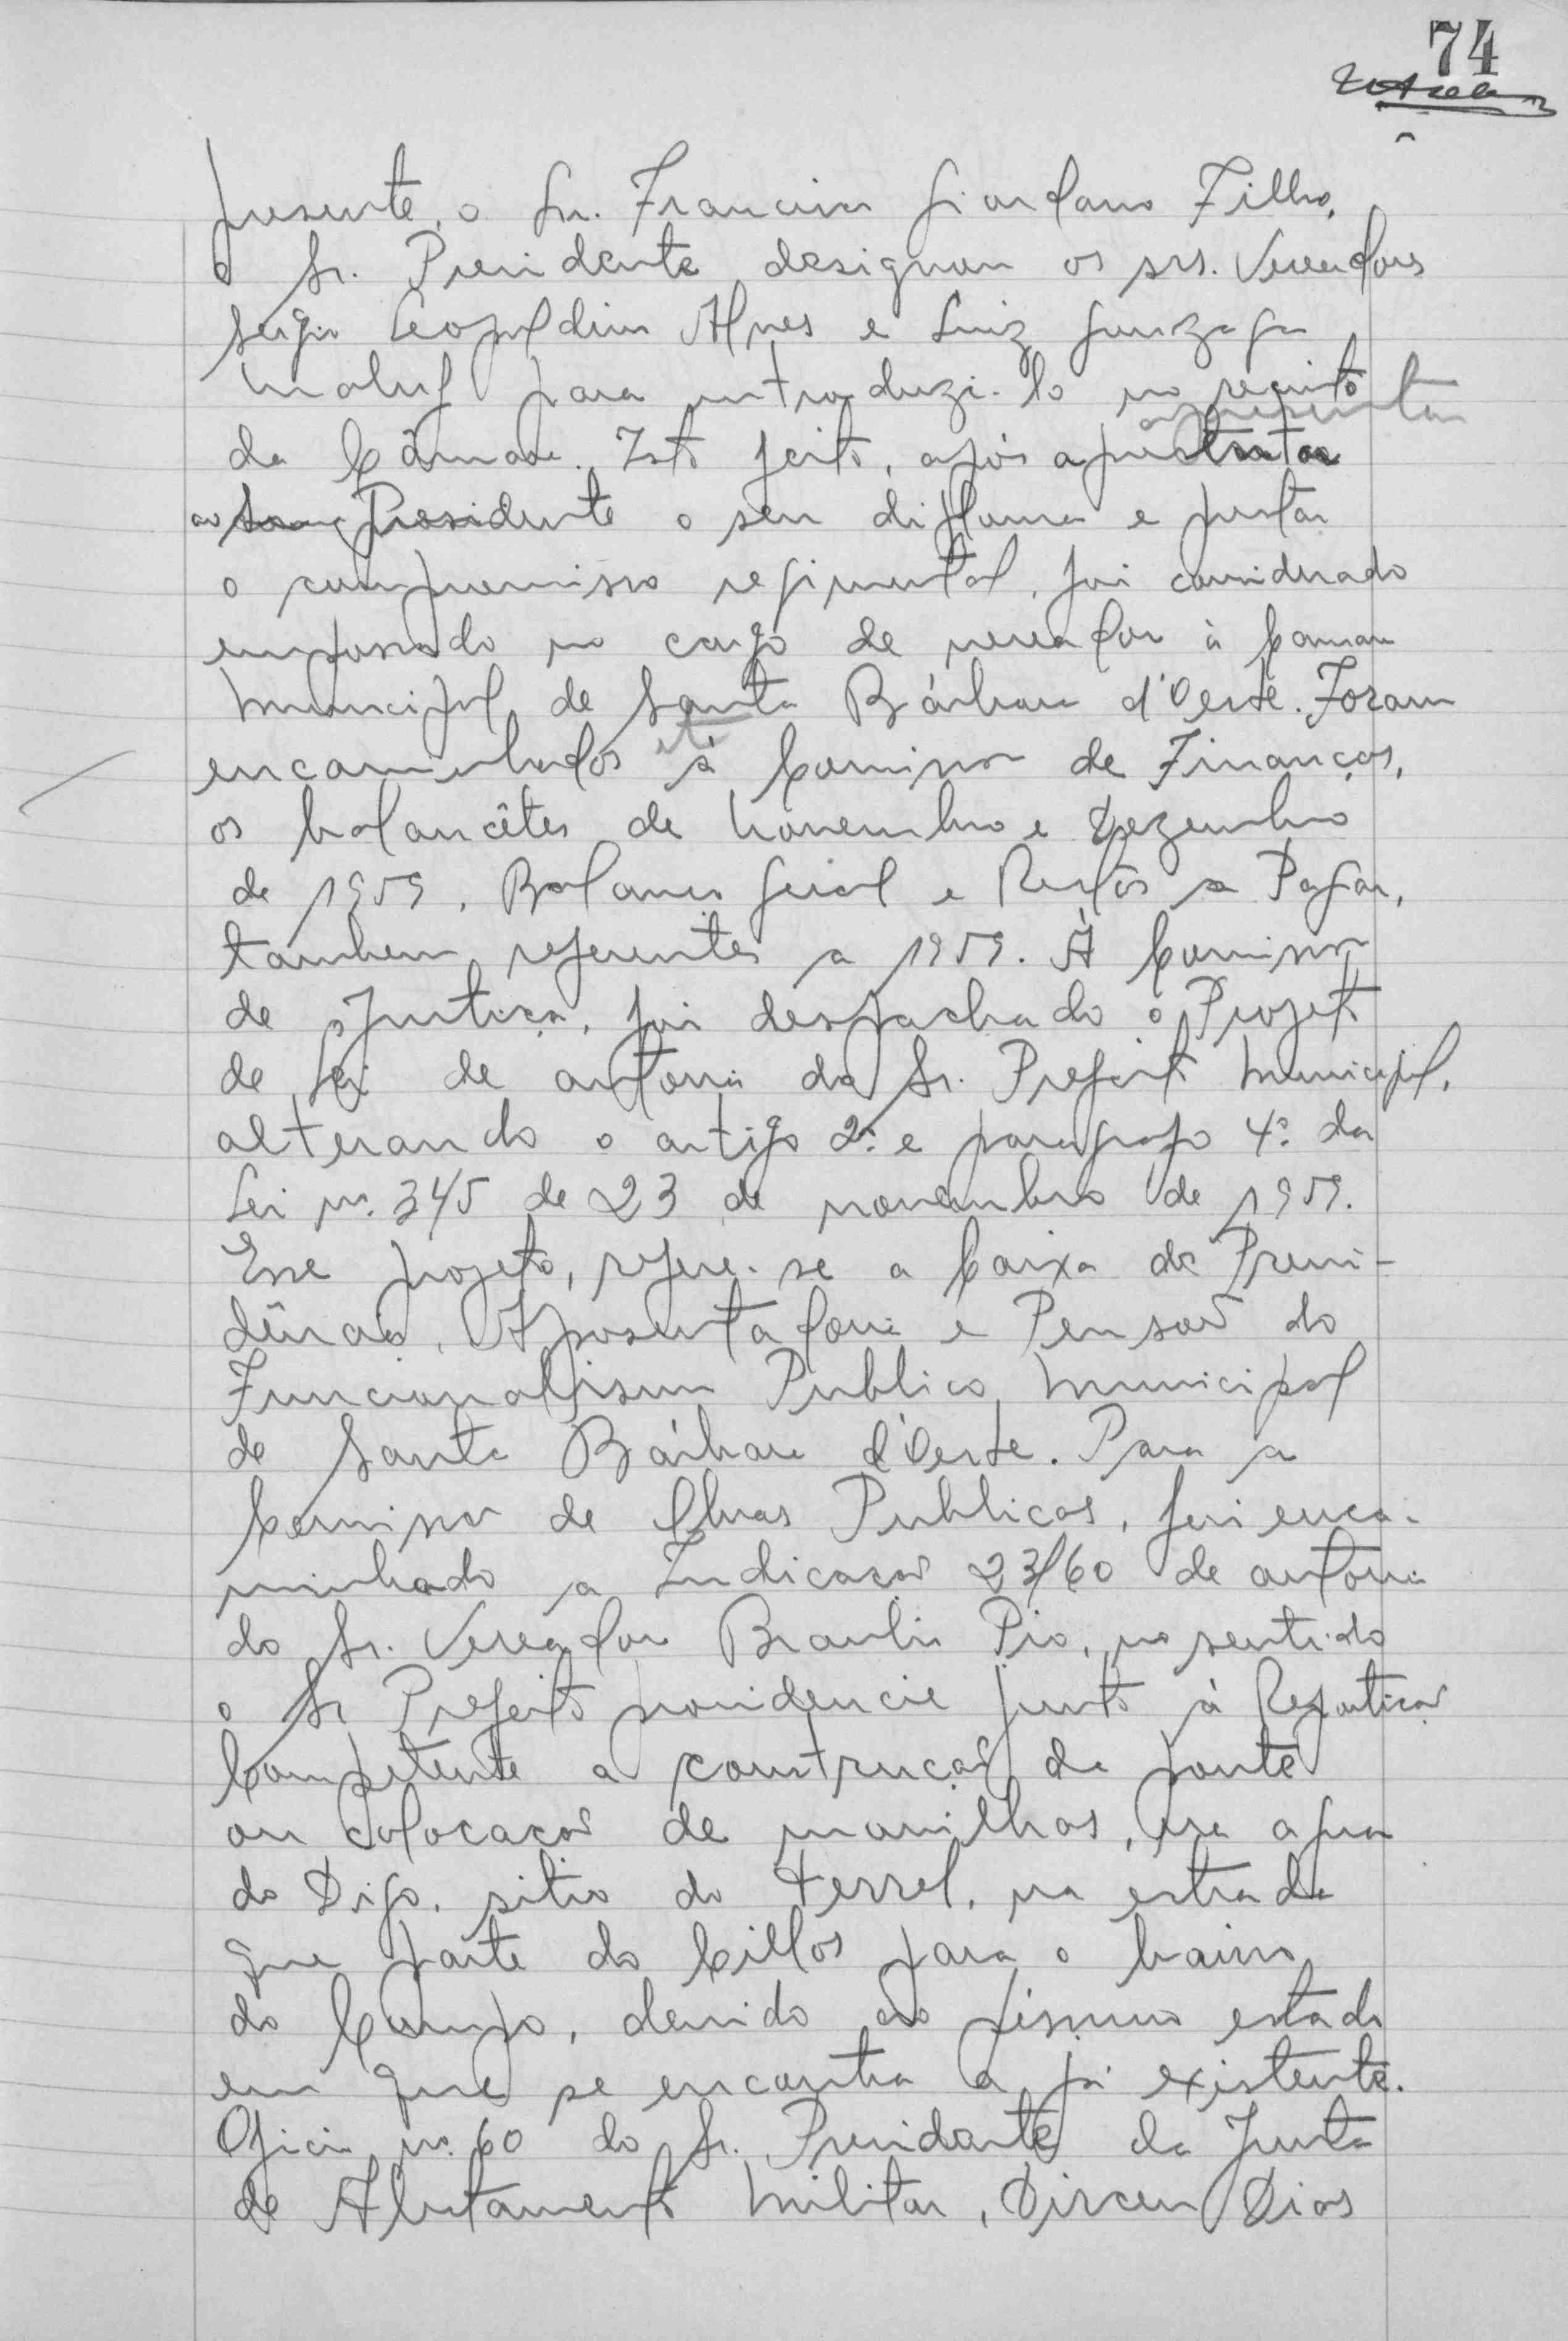 74
presente, o Sr. Francisco Giordano Filho,
o Sr. Presidente designou os srs. Vereadores
Sergio Leopoldino Alves e Luiz Gonzaga
Maluf para introduzi-lo no recinto
apresentar
da Câmara. Isto feito, após
ao Presidente o seu diploma e prestar
o compromisso regimental, foi considerado
empossado no cargo de vereador à Camara
Municipal de Santa Bárbara d'Oeste. Foram
encaminhados à Comissão de Finanças,
os balancêtes de Novembro e Dezembro
de 1959, Balanço Geral e Restos a Pagar,
tambem referentes a 1959. À Comissão
de Justiça, foi despachado o Projeto
de Lei de autoria do Sr. Prefeito Municipal,
alterando o artigo 2º e paragrafo 4º da
Lei nº. 345 de 23 de novembro de 1959.
Esse projeto, refere-se a Caixa de Previ-
dência, Aposentadoria e Pensão do
Funcionalismo Publico Municipal
de Santa Bárbara d'Oeste. Para a
Comissão de Obras Publicas, foi enca-
minhado a Indicação 23/60 de autoria
do Sr. Vereador Braulio Pio, no sentido
o Sr Prefeito providencie junto à Repartição
Competente a construção de ponte
ou colocação de manilhas, na agua
do Digo, sitio do Ferrel, na estrada
que parte do Cillos para o bairro
do Campo, devido ao péssimo estado
em que se encontra a já existente.
Oficio nº. 60 do Sr. Presidente da Junta
de Alistamento Militar, Dirceu Dias